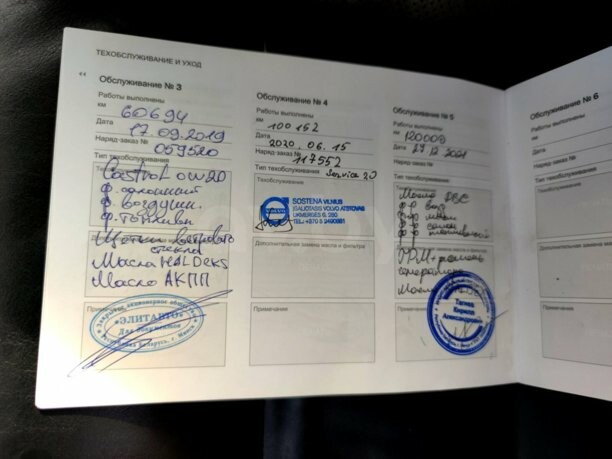 ТЕХОБСЛУЖИВАНИЕ И УХОД
Обслуживание № 3
Работы выполнены
км 60694
Дата 17.09.2019
Наряд-заказ № 059520
Тип техобслуживания
Castrol OW20
ф. салонный
ф. воздушн.
ф. топливн
Щетки ветрового
стекла
Масла HALDEKS
Масло АКПП
Примечания
"ЭЛИТАВТО"
Для документов
Республика Беларусь, г. Минск
Обслуживание № 4
Работы выполнены
км 100 152
Дата 2020.06.15
Наряд-заказ № 117552
Тип техобслуживания Service 20
Техобслуживание
VOLVO
SOSTENA VILNIUS
ĮGALIOTASIS VOLVO ATSTOVAS
UKMERGĖS G. 280
Дополнительная замена масла и фильтра
Примечания
Обслуживание № 5
Работы выполнены
км 120000
Дата 27 12 2021
Наряд-заказ №
Тип техобслуживания
Масло ДВС
ф-р
ф-р
ф-р салон
ф-р
ГРМ + ролики
Масло
Примечания
Кирилл
Обслуживание № 6
Работы выполнены
км
Дата
Наряд-заказ №
Тип техобслуживания
Техобслуживание
Дополнительная
Примечания